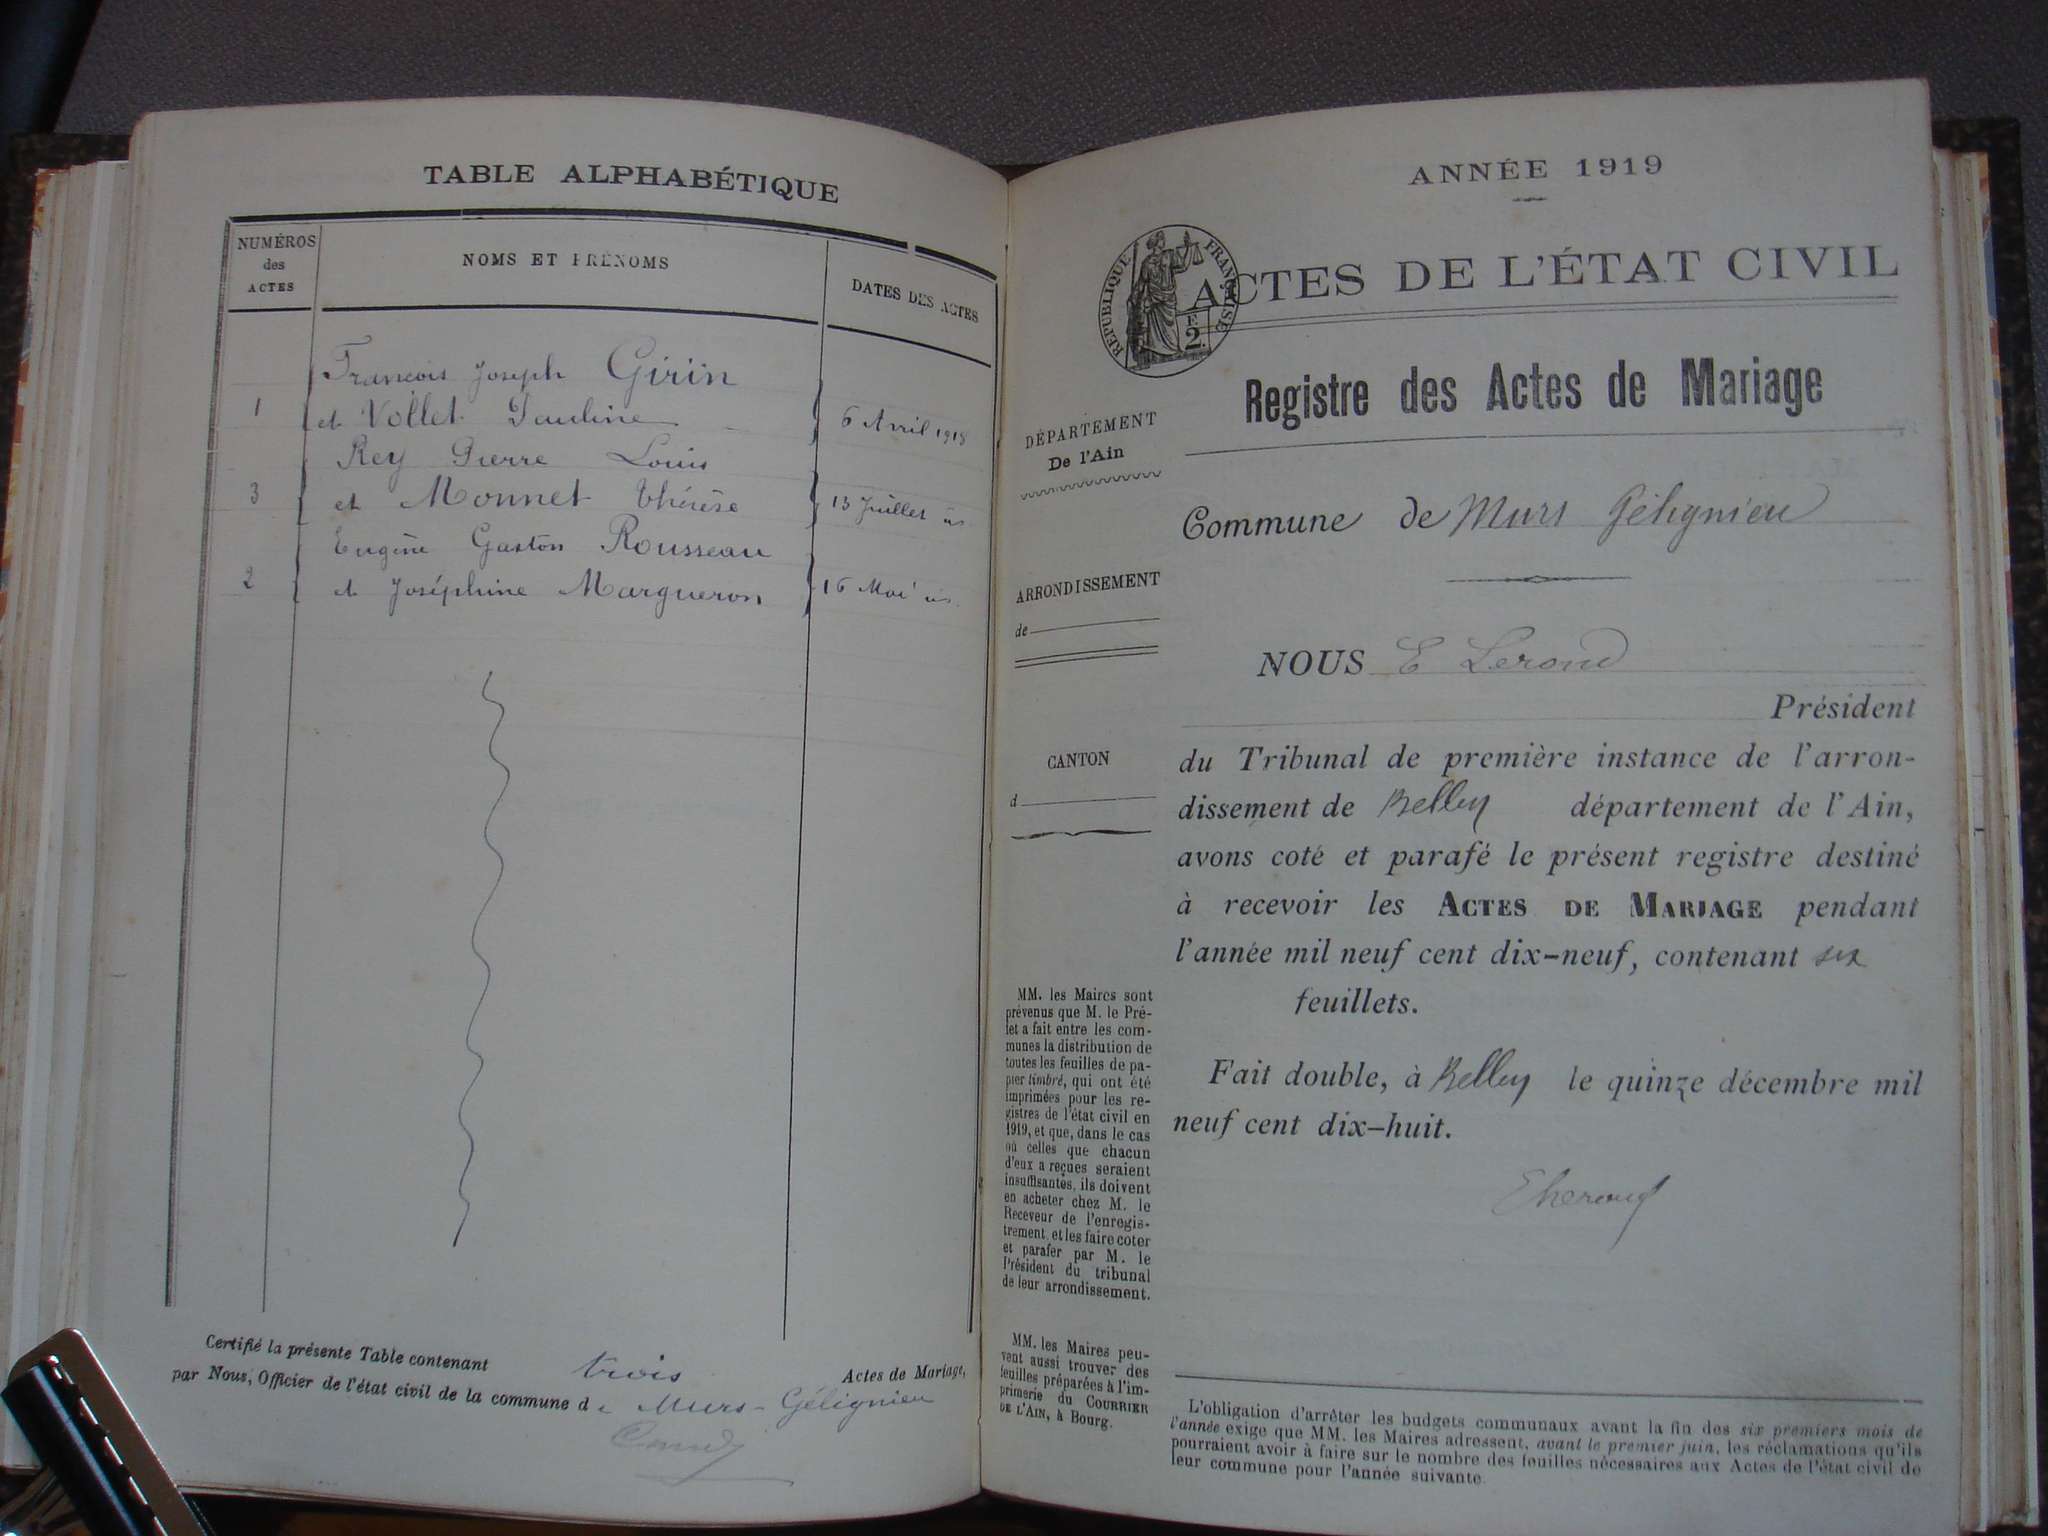 TABLE ALPHABÉTIQUE
NUMÉROS des ACTES
NOMS ET PRÉNOMS
DATES DES ACTES
François Joseph Girin
1 et Vollet Pauline 6 Avril 1918
Rey Pierre Louis
3 et Monnet Thérèse 13 Juillet
Eugène Gaston Rousseau
2 et Joséphine Margueron 16 Mai
Certifié la présente Table contenant trois Actes de Mariage,
par Nous, Officier de l'état civil de la commune de Murs-Gélignieu
ANNÉE 1919
RÉPUBLIQUE FRANÇAISE
F. 2.
ACTES DE L'ÉTAT CIVIL
Registre des Actes de Mariage
DÉPARTEMENT
De l'Ain
Commune de Murs Gélignieu
ARRONDISSEMENT
de
NOUS E Lerond
Président
CANTON
d
du Tribunal de première instance de l'arron-
dissement de Belley département de l'Ain,
avons coté et parafé le présent registre destiné
à recevoir les ACTES DE MARIAGE pendant
l'année mil neuf cent dix-neuf, contenant six
feuillets.
Fait double, à Belley le quinze décembre mil
neuf cent dix-huit.
MM. les Maires sont
prévenus que M. le Pré-
fet a fait entre les com-
munes la distribution de
toutes les feuilles de pa-
pier timbré, qui ont été
imprimées pour les re-
gistres de l'état civil en
1919, et que, dans le cas
où celles que chacun
d'eux a reçues seraient
insuffisantes, ils doivent
en acheter chez M. le
Receveur de l'enregis-
trement, et les faire coter
et parafer par M. le
Président du tribunal
de leur arrondissement.
MM. les Maires peu-
vent aussi trouver des
feuilles préparées à l'im-
primerie du COURRIER
DE L'AIN, à Bourg.
L'obligation d'arrêter les budgets communaux avant la fin des six premiers mois de
l'année exige que MM. les Maires adressent, avant le premier juin, les réclamations qu'ils
pourraient avoir à faire sur le nombre des feuilles nécessaires aux Actes de l'état civil de
leur commune pour l'année suivante.